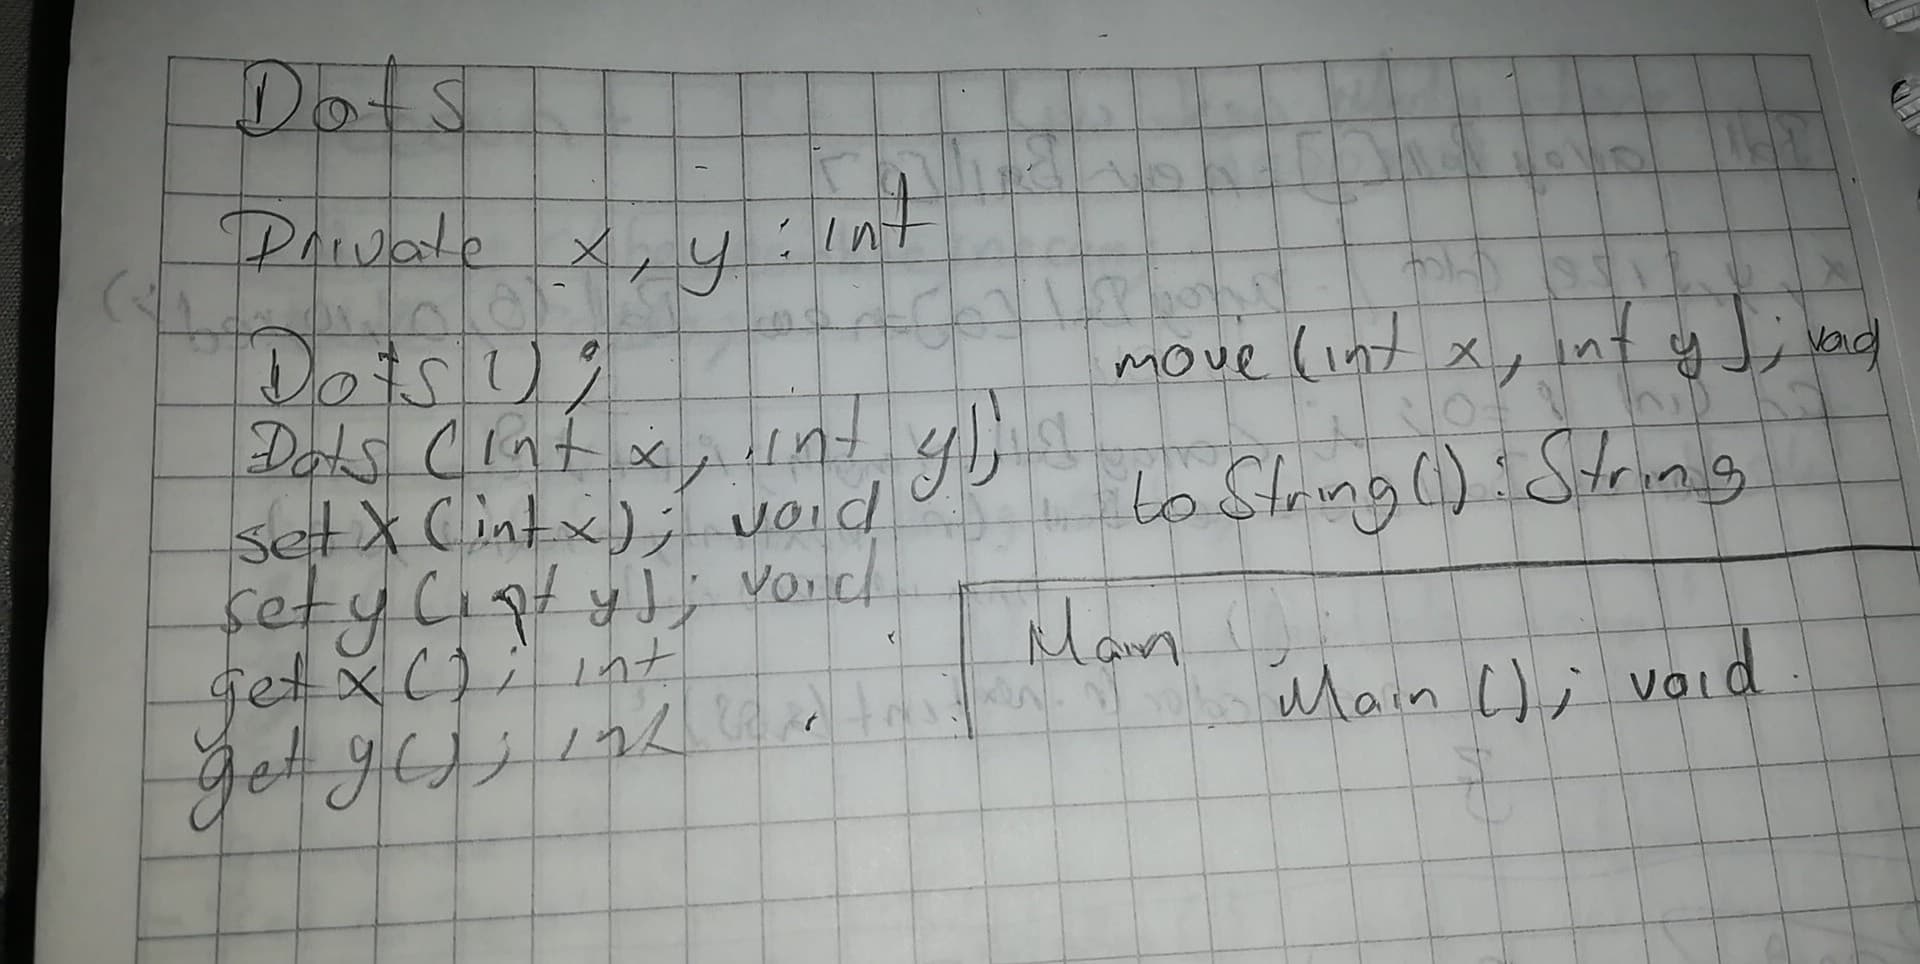 Dots
Private x, y : int
Dots();
Dots (int x, int y);
set X (int x); void
set y (int y); void
get x(); int
get y(); int
move (int x, int y); void
to String() : String
Main
Main (); void.